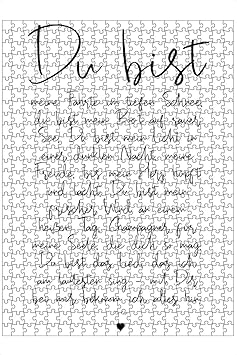 Du bist
meine Fährte im tiefen Schnee,
du bist mein Boot auf rauer
See, Du bist mein Licht in
einer dunklen Nacht, meine
Freude, bis mein Herz hüpft
und lacht. Du bist mein
frischer Wind an einem
heißen Tag, Champagner für
meine Seele, die dich so mag.
Du bist das Lied, das ich
am lautesten sing - mit Dir
bei mir bekomm ich alles hin